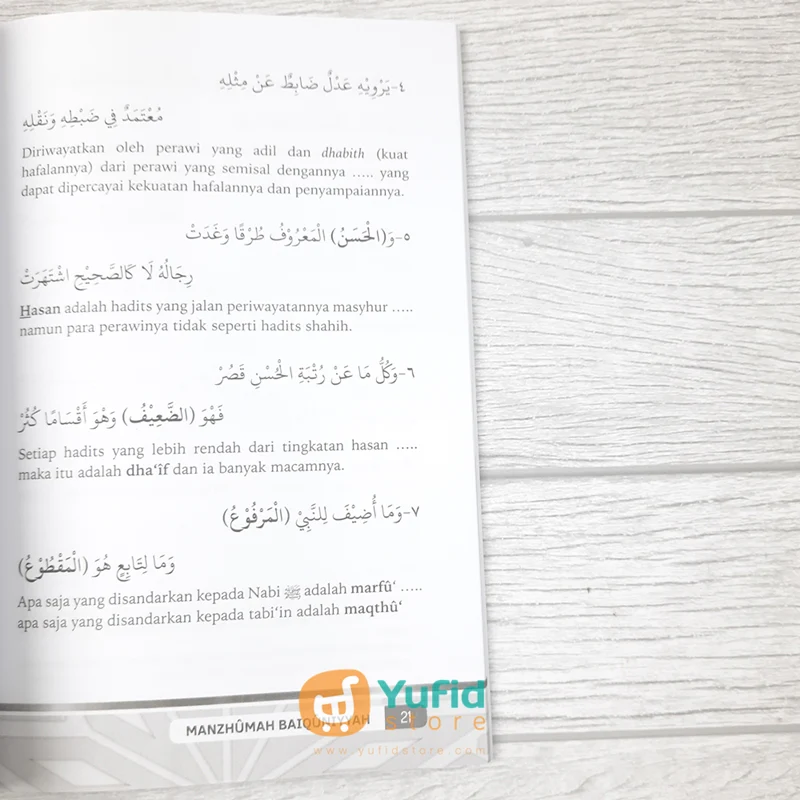 ٤-يَرْوِيْهِ عَدْلٌ ضَابِطٌ عَنْ مِثْلِهِ
مُعْتَمَدٌ فِي ضَبْطِهِ وَنَقْلِهِ
Diriwayatkan oleh perawi yang adil dan dhabith (kuat
hafalannya) dari perawi yang semisal dengannya ..... yang
dapat dipercayai kekuatan hafalannya dan penyampaiannya.
٥-وَ(الْحَسَنُ) الْمَعْرُوْفُ طُرْقًا وَغَدَتْ
رِجَالُهُ لَا كَالصَّحِيْحِ اشْتَهَرَتْ
Hasan adalah hadits yang jalan periwayatannya masyhur .....
namun para perawinya tidak seperti hadits shahih.
٦-وَكُلُّ مَا عَنْ رُتْبَةِ الْحُسْنِ قَصُرْ
فَهْوَ (الضَّعِيْفُ) وَهْوَ أَقْسَامًا كُثُرْ
Setiap hadits yang lebih rendah dari tingkatan hasan .....
maka itu adalah dha‘îf dan ia banyak macamnya.
٧-وَمَا أُضِيْفَ لِلنَّبِيْ (الْمَرْفُوْعُ)
وَمَا لِتَابِعٍ هُوَ (الْمَقْطُوْعُ)
Apa saja yang disandarkan kepada Nabi ﷺ adalah marfû‘ .....
apa saja yang disandarkan kepada tabi‘in adalah maqthû‘
MANZHÛMAH BAIQÛNIYYAH 21
Yufid
store
www.yufidstore.com